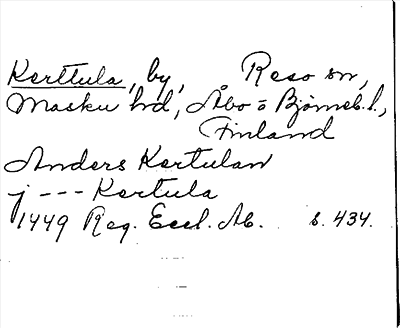 Kerttula, by, Reso sn,
Masku hd, Åbo o Björneb. l.,
Finland
Anders Kertulan
j --- Kertula
1449 Reg. Eccl. Ab. s. 434.